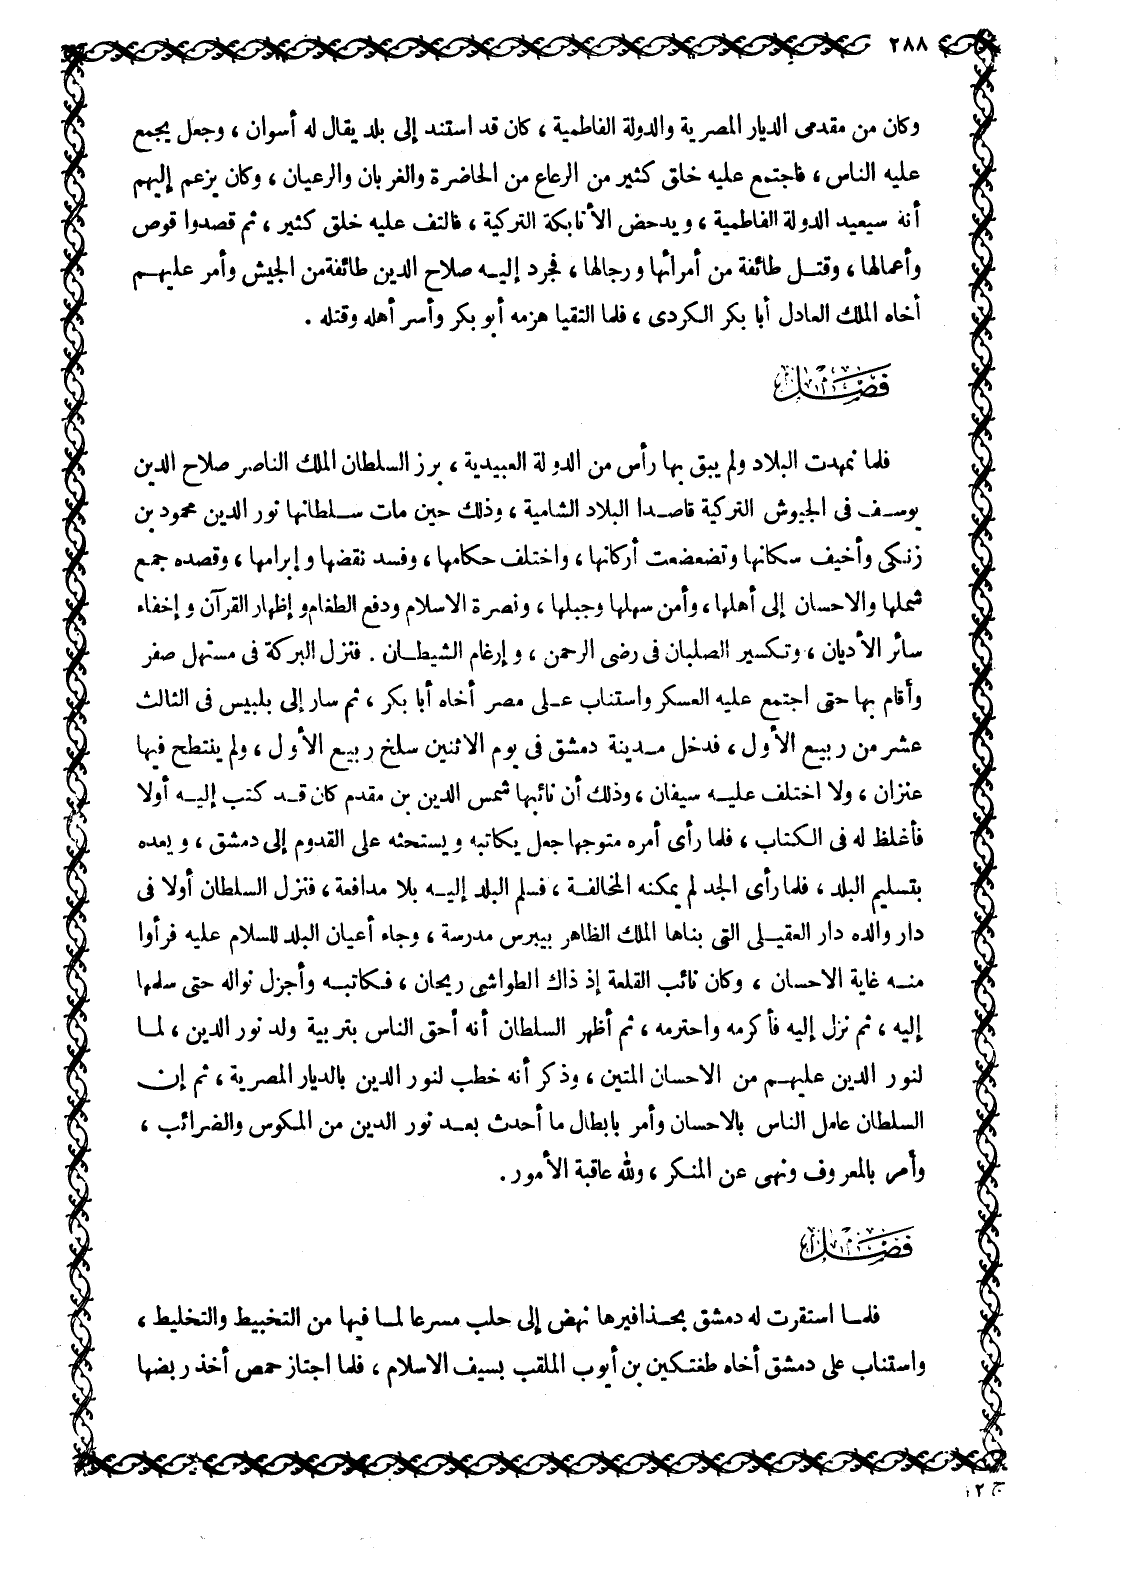 ٢٨٨
وكان من مقدمى الديار المصرية والدولة الفاطمية ، كان قد استند إلى بلد يقال له أسوان ، وجعل يجمع
عليه الناس ، فاجتمع عليه خلق كثير من الرعاع من الحاضرة والغربان والرعيان ، وكان يزعم إليهم
أنه سيعيد الدولة الفاطمية ، ويدحض الأتابكة التركية ، فالتف عليه خلق كثير ، ثم قصدوا قوص
وأعمالها ، وقتل طائفة من أمرائها ورجالها ، فجرد إليه صلاح الدين طائفة من الجيش وأمر عليهم
أخاه الملك العادل أبا بكر الكردى ، فلما التقيا هزمه أبو بكر وأسر أهله وقتله .
فصل
فلما تمهدت البلاد ولم يبق بها رأس من الدولة العبيدية ، برز السلطان الملك الناصر صلاح الدين
يوسف فى الجيوش التركية قاصدا البلاد الشامية ، وذلك حين مات سلطانها نور الدين محمود بن
زنكى وأخيف سكانها وتضعضعت أركانها ، واختلف حكامها ، وفسد نقضها وإبرامها ، وقصده جمع
شملها والاحسان إلى أهلها ، وأمن سهلها وجبلها ، ونصرة الاسلام ودفع الطغام وإظهار القرآن وإخفاء
سائر الأديان ، وتكسير الصلبان فى رضى الرحمن ، وإرغام الشيطان . فنزل البركة فى مستهل صفر
وأقام بها حتى اجتمع عليه العسكر واستناب على مصر أخاه أبا بكر ، ثم سار إلى بلبيس فى الثالث
عشر من ربيع الأول ، فدخل مدينة دمشق فى يوم الاثنين سلخ ربيع الأول ، ولم ينتطح فيها
عنزان ، ولا اختلف عليه سيفان ، وذلك أن نائبها شمس الدين بن مقدم كان قد كتب إليه أولا
فأغلظ له فى الكتاب ، فلما رأى أمره متوجها جعل يكاتبه ويستحثه على القدوم إلى دمشق ، ويعده
بتسليم البلد ، فلما رأى الجد لم يمكنه المخالفة ، فسلم البلد إليه بلا مدافعة ، فنزل السلطان أولا فى
دار والده دار العقيلى التى بناها الملك الظاهر بيبرس مدرسة ، وجاء أعيان البلد للسلام عليه فرأوا
منه غاية الاحسان ، وكان نائب القلعة إذ ذاك الطواشى ريحان ، فكاتبه وأجزل نواله حتى سلمها
إليه ، ثم نزل إليه فأكرمه واحترمه ، ثم أظهر السلطان أنه أحق الناس بتربية ولد نور الدين ، لما
لنور الدين عليهم من الاحسان المتين ، وذكر أنه خطب لنور الدين بالديار المصرية ، ثم إن
السلطان عامل الناس بالاحسان وأمر بابطال ما أحدث بعد نور الدين من المكوس والضرائب ،
وأمر بالمعروف ونهى عن المنكر ، ولله عاقبة الأمور .
فصل
فلما استقرت له دمشق بحذافيرها نهض إلى حلب مسرعا لما فيها من التخبيط والتخليط ،
واستناب على دمشق أخاه طغتكين بن أيوب الملقب بسيف الاسلام ، فلما اجتاز حمص أخذ ربضها
ج ١٢